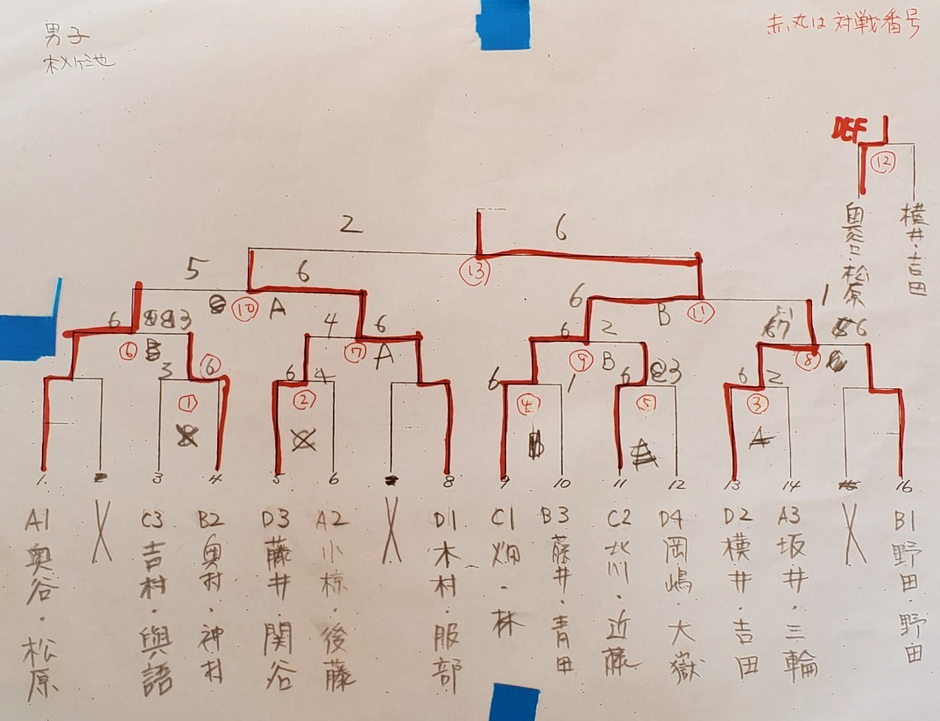 男子
赤丸は対戦番号
DEF
⑫
奥谷・松原
横井・吉田
2
6
⑬
5
6
⑩
A
6
B
⑪
1
6
3
⑥
4
6
⑦
A
6
2
⑨
B
7
6
⑧
3
6
①
6
4
②
6
1
④
6
3
⑤
6
2
③
A
1
3
4
5
6
8
9
10
11
12
13
14
16
A1 奥谷・松原
C3 吉村・與語
B2 奥村・神村
D3 藤井・関谷
A2 小椋・後藤
D1 木村・服部
C1 畑・林
B3 藤井・青田
C2 北川・近藤
D4 岡嶋・大嶽
D2 横井・吉田
A3 坂井・三輪
B1 野田・野田